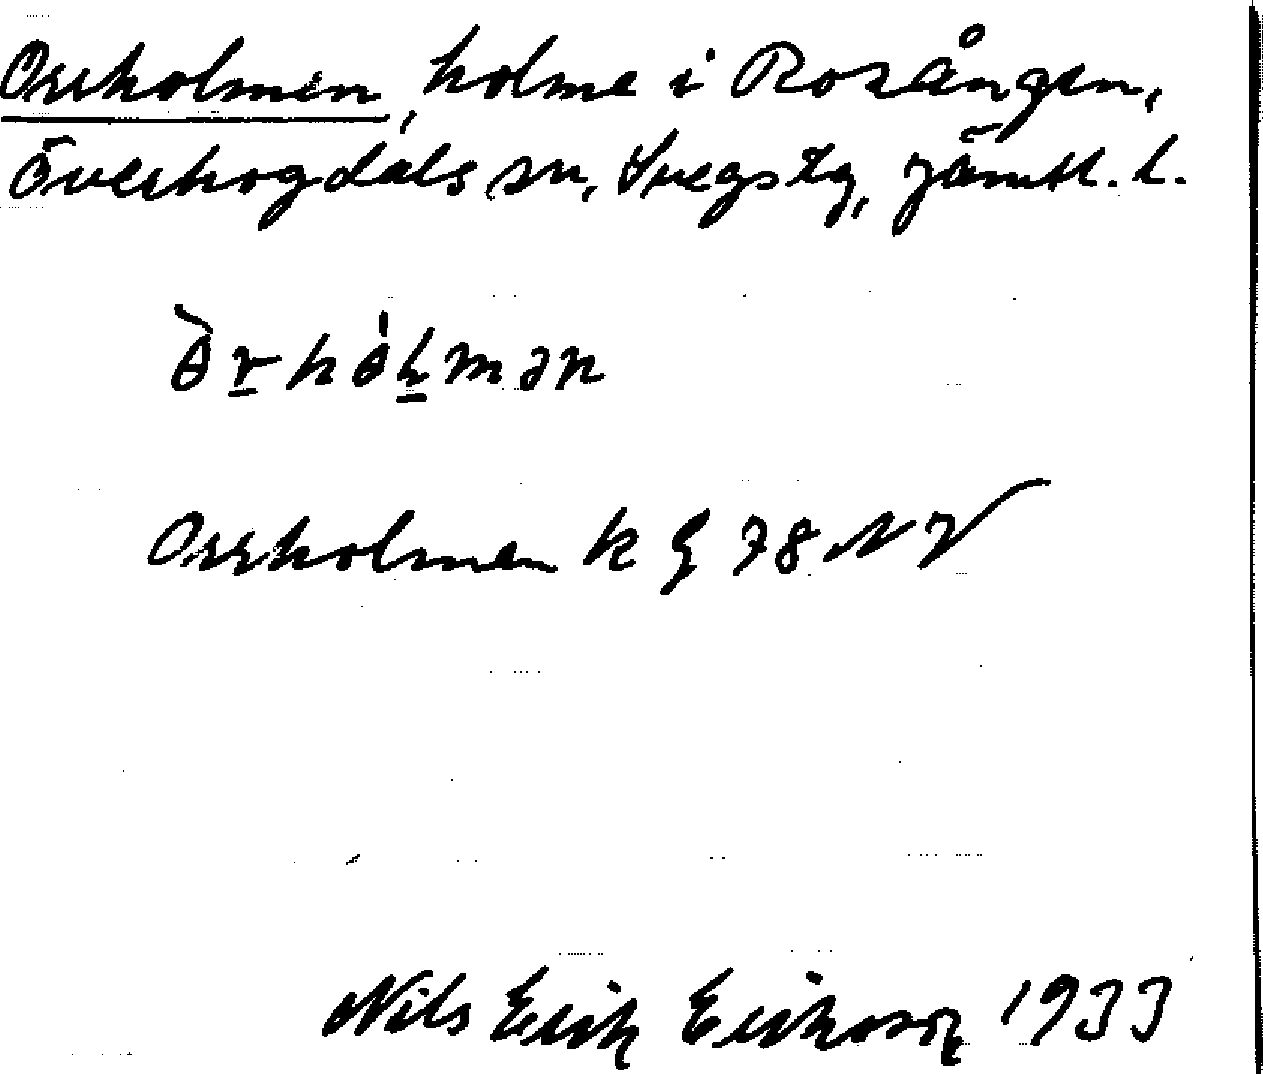 Orrholmen, holme i Rosången,
Överhogdals sn, Svegs tg, Jämtl. l.
òrhólmən
Orrholmen k G 78 NV
Nils Erik Erikson 1933